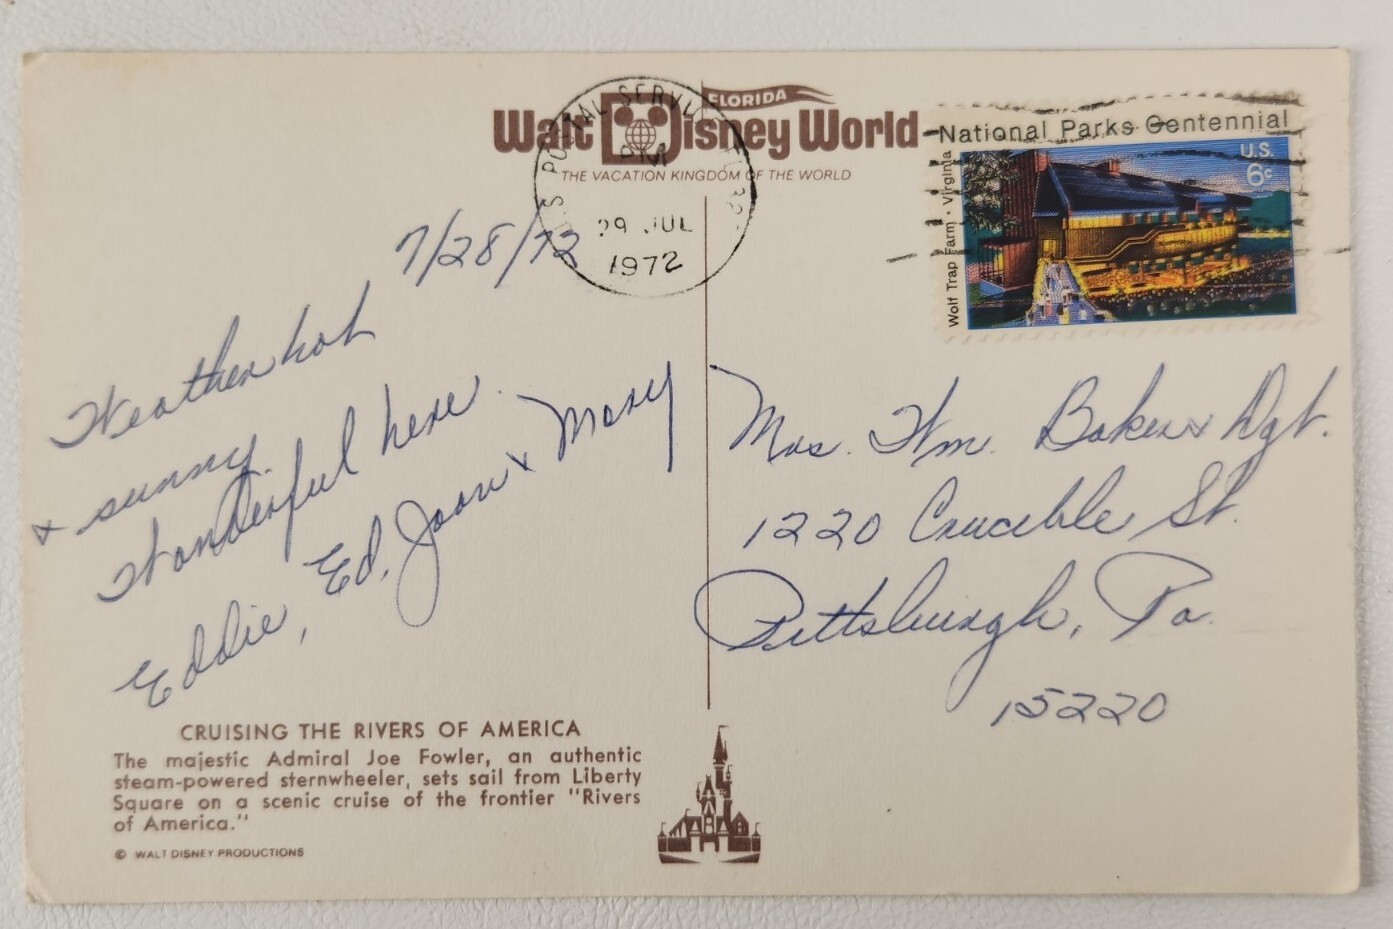 FLORIDA
Walt Disney World
THE VACATION KINGDOM OF THE WORLD
U.S. POSTAL SERVICE
PM
29 JUL
1972
National Parks Centennial
U.S.
6c
Wolf Trap Farm · Virginia
7/28/72
Weather hot
& sunny.
Wonderful here.
Eddie, Ed, Joan & Mary
Mrs. Wm. Baker & Dgt.
1220 Crucible St.
Pittsburgh, Pa.
15220
CRUISING THE RIVERS OF AMERICA
The majestic Admiral Joe Fowler, an authentic
steam-powered sternwheeler, sets sail from Liberty
Square on a scenic cruise of the frontier "Rivers
of America."
© WALT DISNEY PRODUCTIONS